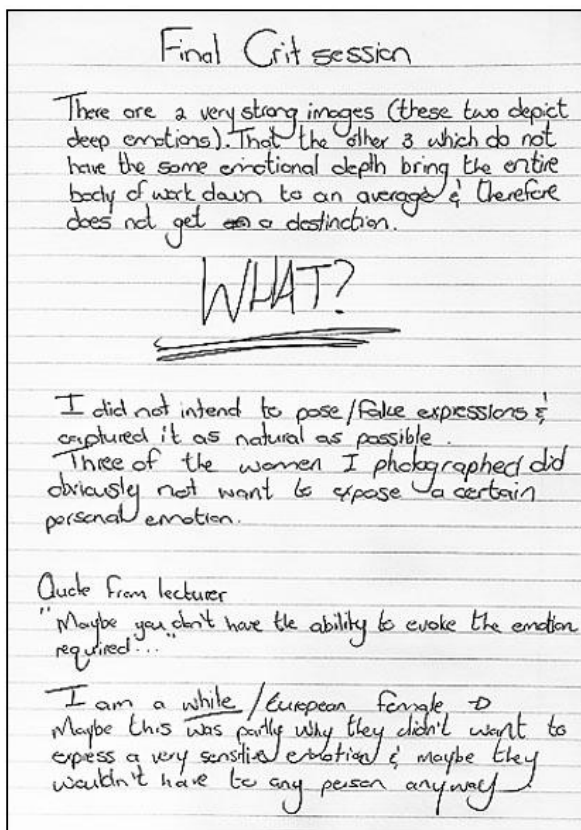 Final Crit session
There are 2 very strong images (these two depict
deep emotions). That the other 3 which do not
have the same emotional depth bring the entire
body of work down to an average & therefore
does not get a destinction.
WHAT?
I did not intend to pose/fake expressions &
captured it as natural as possible.
Three of the women I photographed did
obviously not want to expose a certain
personal emotion.
Quote from lecturer
"Maybe you don't have the ability to evoke the emotion
required..."
I am a white/European female →
Maybe this was partly why they didn't want to
express a very sensitive emotion & maybe they
wouldn't have to any person anyway